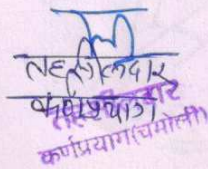 तहसीलदार
कर्णप्रयाग
तहसीलदार
कर्णप्रयाग(चमोली)